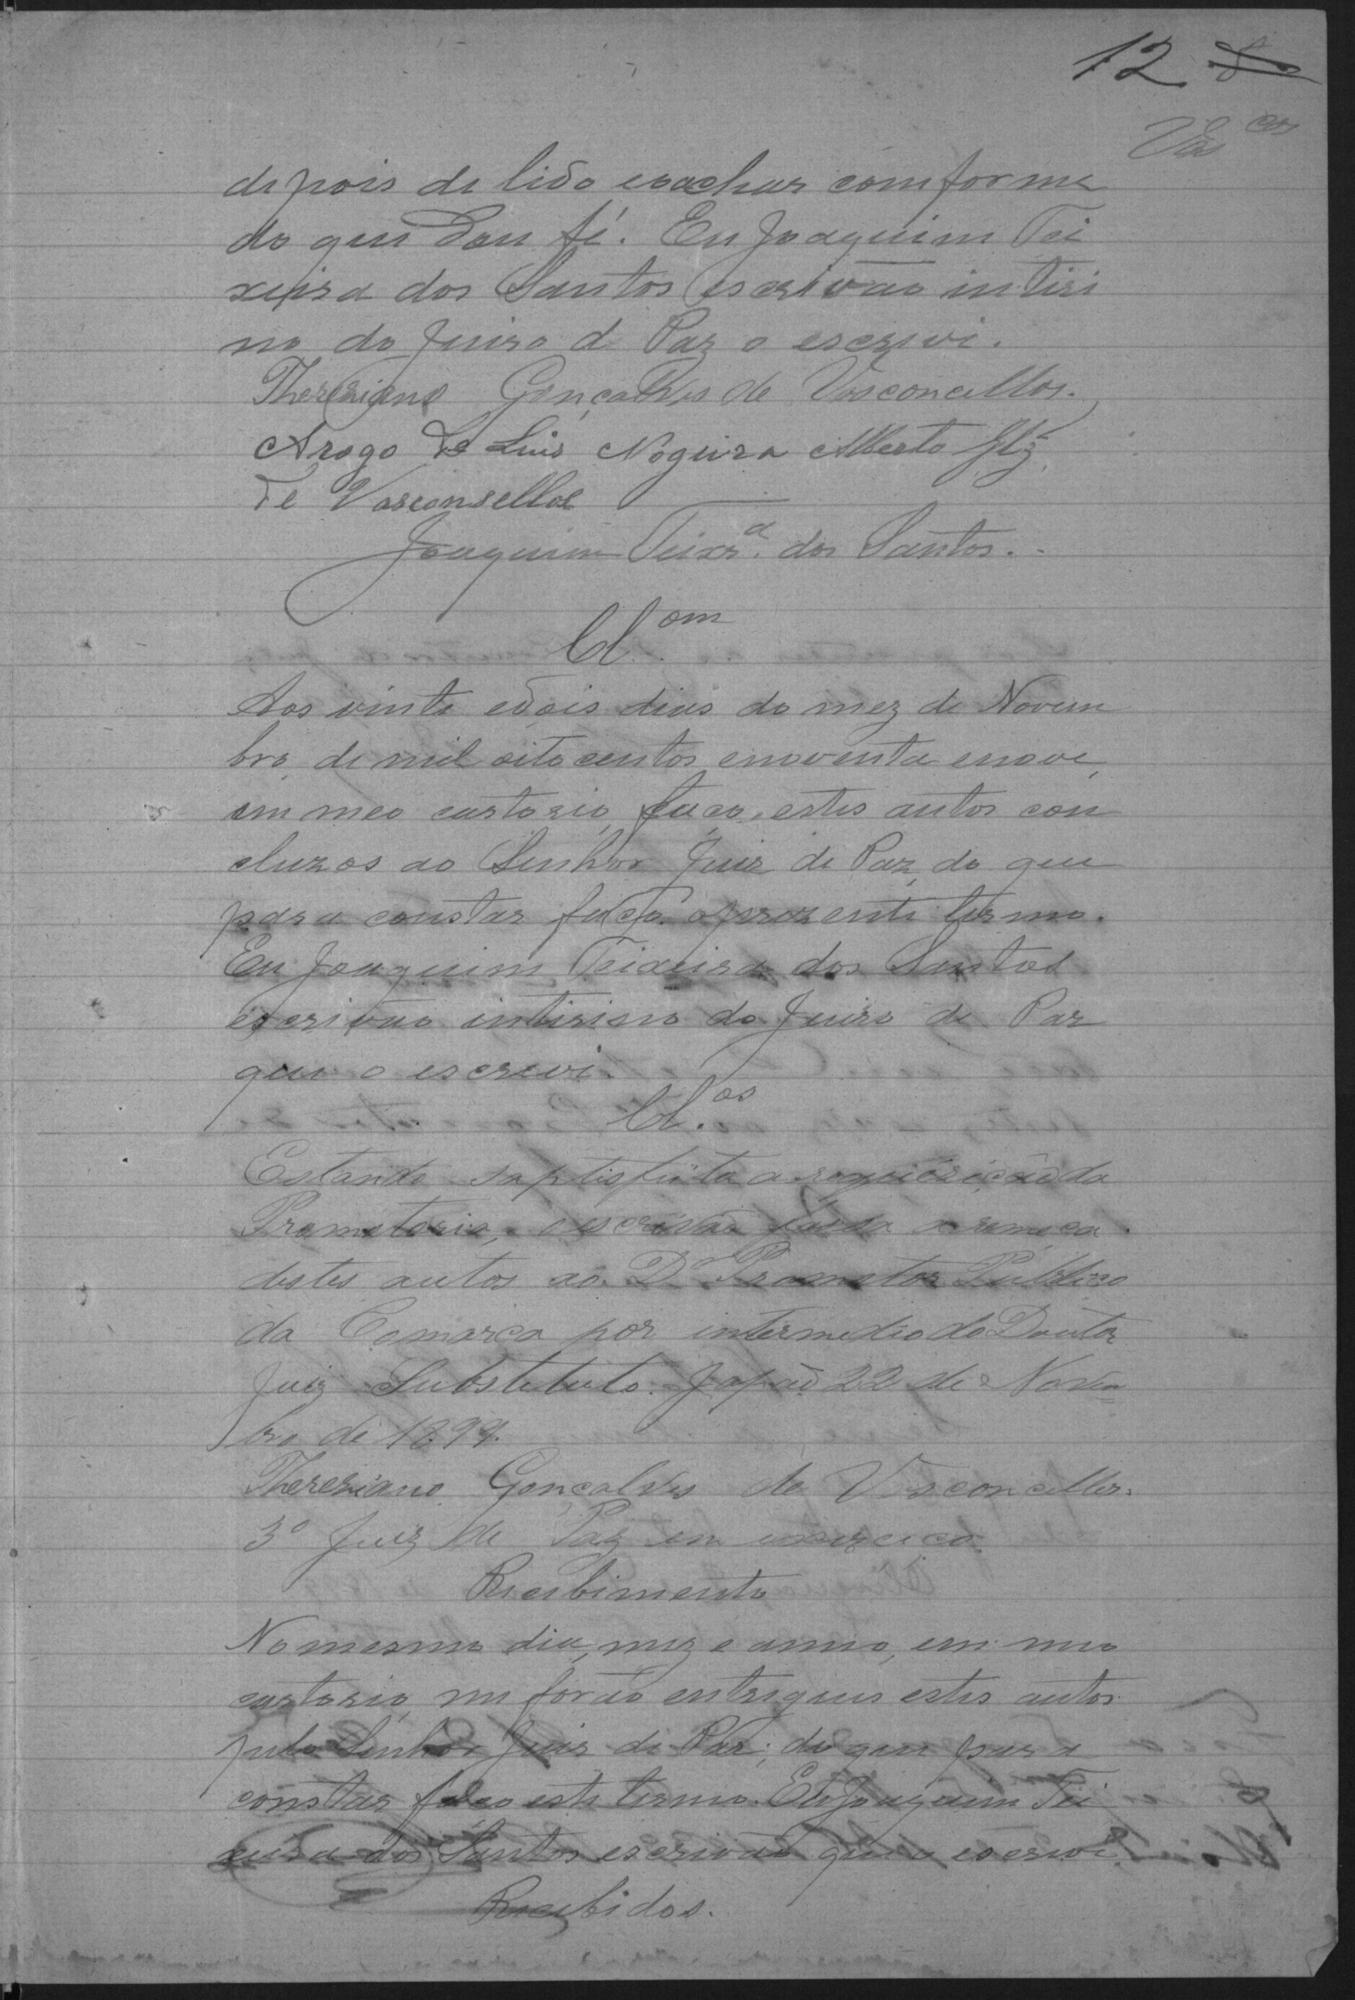 12
Vas.cos
depois de lido e o achar comforme
do que dou fé. Eu Joaquim Tei
xeira dos Santos escrivão intiri
no do Juiso de Paz o escrevi.
Thereziano Gonçalves de Vasconcellos.
Arogo de Luis Nogueira Alberto Glz
de Vasconsellos
Joaquim Teixrª. dos Santos.
Cl.om
Aos vinte e dois dias do mez de Novem
bro de mil oito centos enoventa enove,
em meo cartorio, faço estes autos con
cluzos ao Senhor Juiz de Paz, do que
para constar faço o prezente termo.
Eu Joaquim Teixeira dos Santos
escrivão intirino do Juiso de Paz
que o escrevi.
Cl.os
Estando saptisfeita a requizição da
Promotoria, o escrivão faça a remeça
destes autos ao Dr Promotor Publico
da Comarca por intermedio do Doutor
Juiz Substituto. Japão 22 de Novem
bro de 1899.
Thereziano Gonçalves de Vasconcellos.
3º Juiz de Paz em exercico.
Recibimento
No mesmo dia, mez e anno, em meo
cartorio, me forão entregues estes autos
pelo Senhor Juiz de Paz; do que para
constar faço este termo. Eu Joaquim Tei
xeira dos Santos escrivão que o escrevi.
Recibidos.